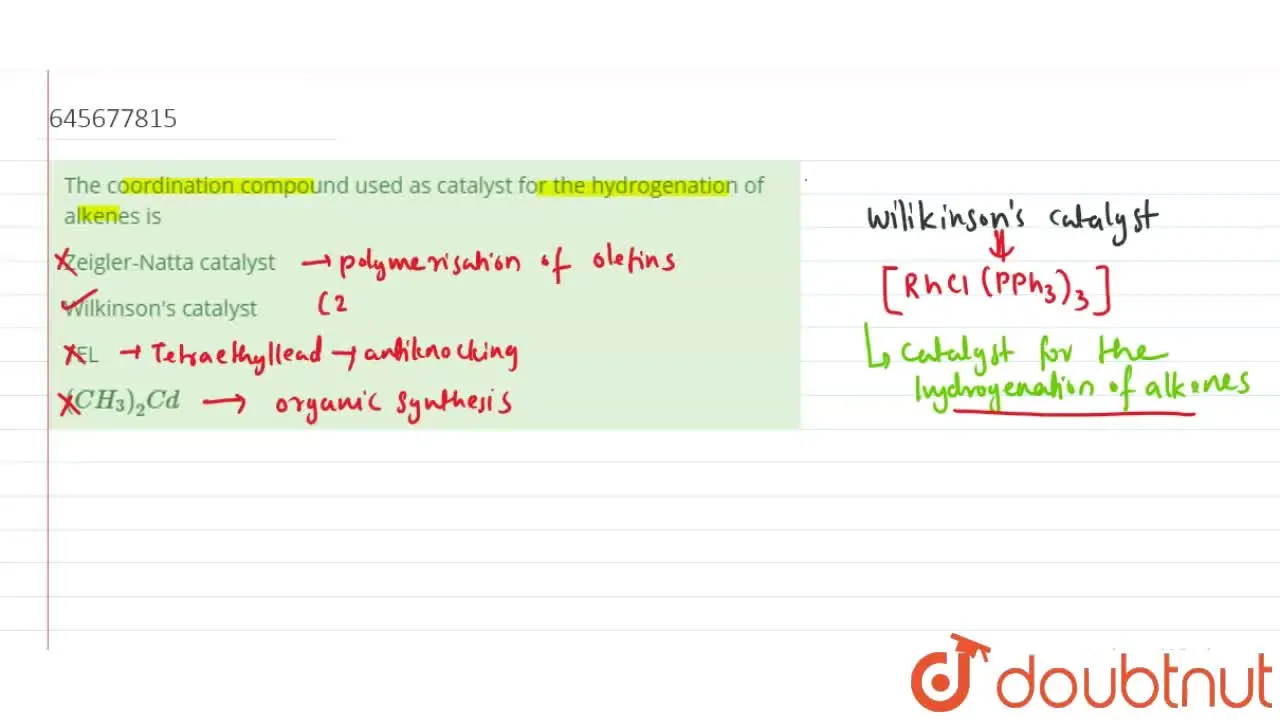 645677815
The coordination compound used as catalyst for the hydrogenation of
alkenes is
Zeigler-Natta catalyst → polymerisation of olefins
Wilkinson's catalyst (2
TEL → Tetraethyllead → antiknocking
(CH₃)₂Cd → organic synthesis
Wilikinson's catalyst
[RhCl(PPh₃)₃]
↳ catalyst for the
hydrogenation of alkenes
doubtnut